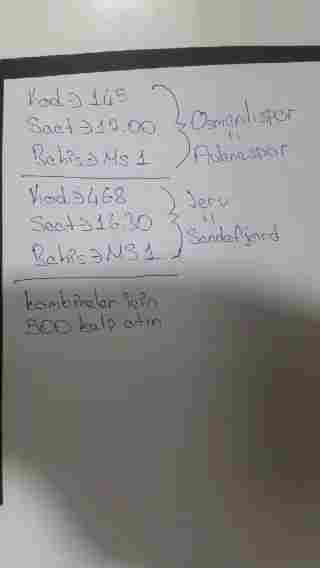 Kod→145
Saat→19.00
Bahis→MS 1
Osmanlıspor
"
Adanaspor
Kod→468
Saat→16.30
Bahis→MS 1
Jerv
"
Sandefjord
kombineler için
500 kalp atın